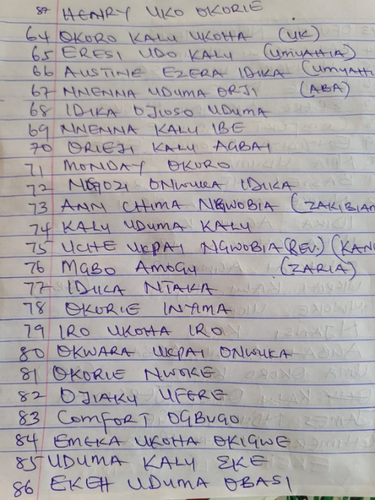 HENRY UKO OKORIE
64 OKORO KALU UKOHA (UK)
65 ERESI UDO KALU (UMUAHIA)
66 AUSTINE EZERA IDIKA (UMUAHI
67 NNENNA UDUMA ORJI (ABA)
68 IDIKA OJIOSO UDUMA
69 NNENNA KALU IBE
70 ORIEJI KALU AGBAI
71 MONDAY OKORO
72 NGOZI ONWUKA IDIKA
73 ANN CHIMA NGWOBIA (ZAKIBIAM
74 KALU UDUMA KALU
75 UCHE UKPAI NGWOBIA (REV.) (KAN
76 MGBO AMOGU (ZARIA)
77 IDIKA NTAKA
78 OKORIE INYIMA
79 IRO UKOHA IRO
80 OKWARA UKPAI ONWUKA
81 OKORIE NWOKE
82 OJIAKU UFERE
83 COMFORT OGBUGO
84 EMEKA UKOHA OKIGWE
85 UDUMA KALU EKE
86 EKEH UDUMA OBASI